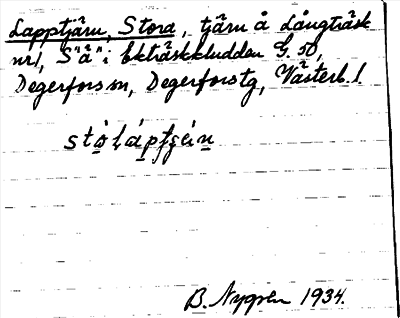 Lapptjärn, Stora, tjärn å Långträsk
nr 1, S"ä" i Ekträskkludden G. 50,
Degerfors sn, Degerforstg, Västerb. l.
B. Nygren 1934.